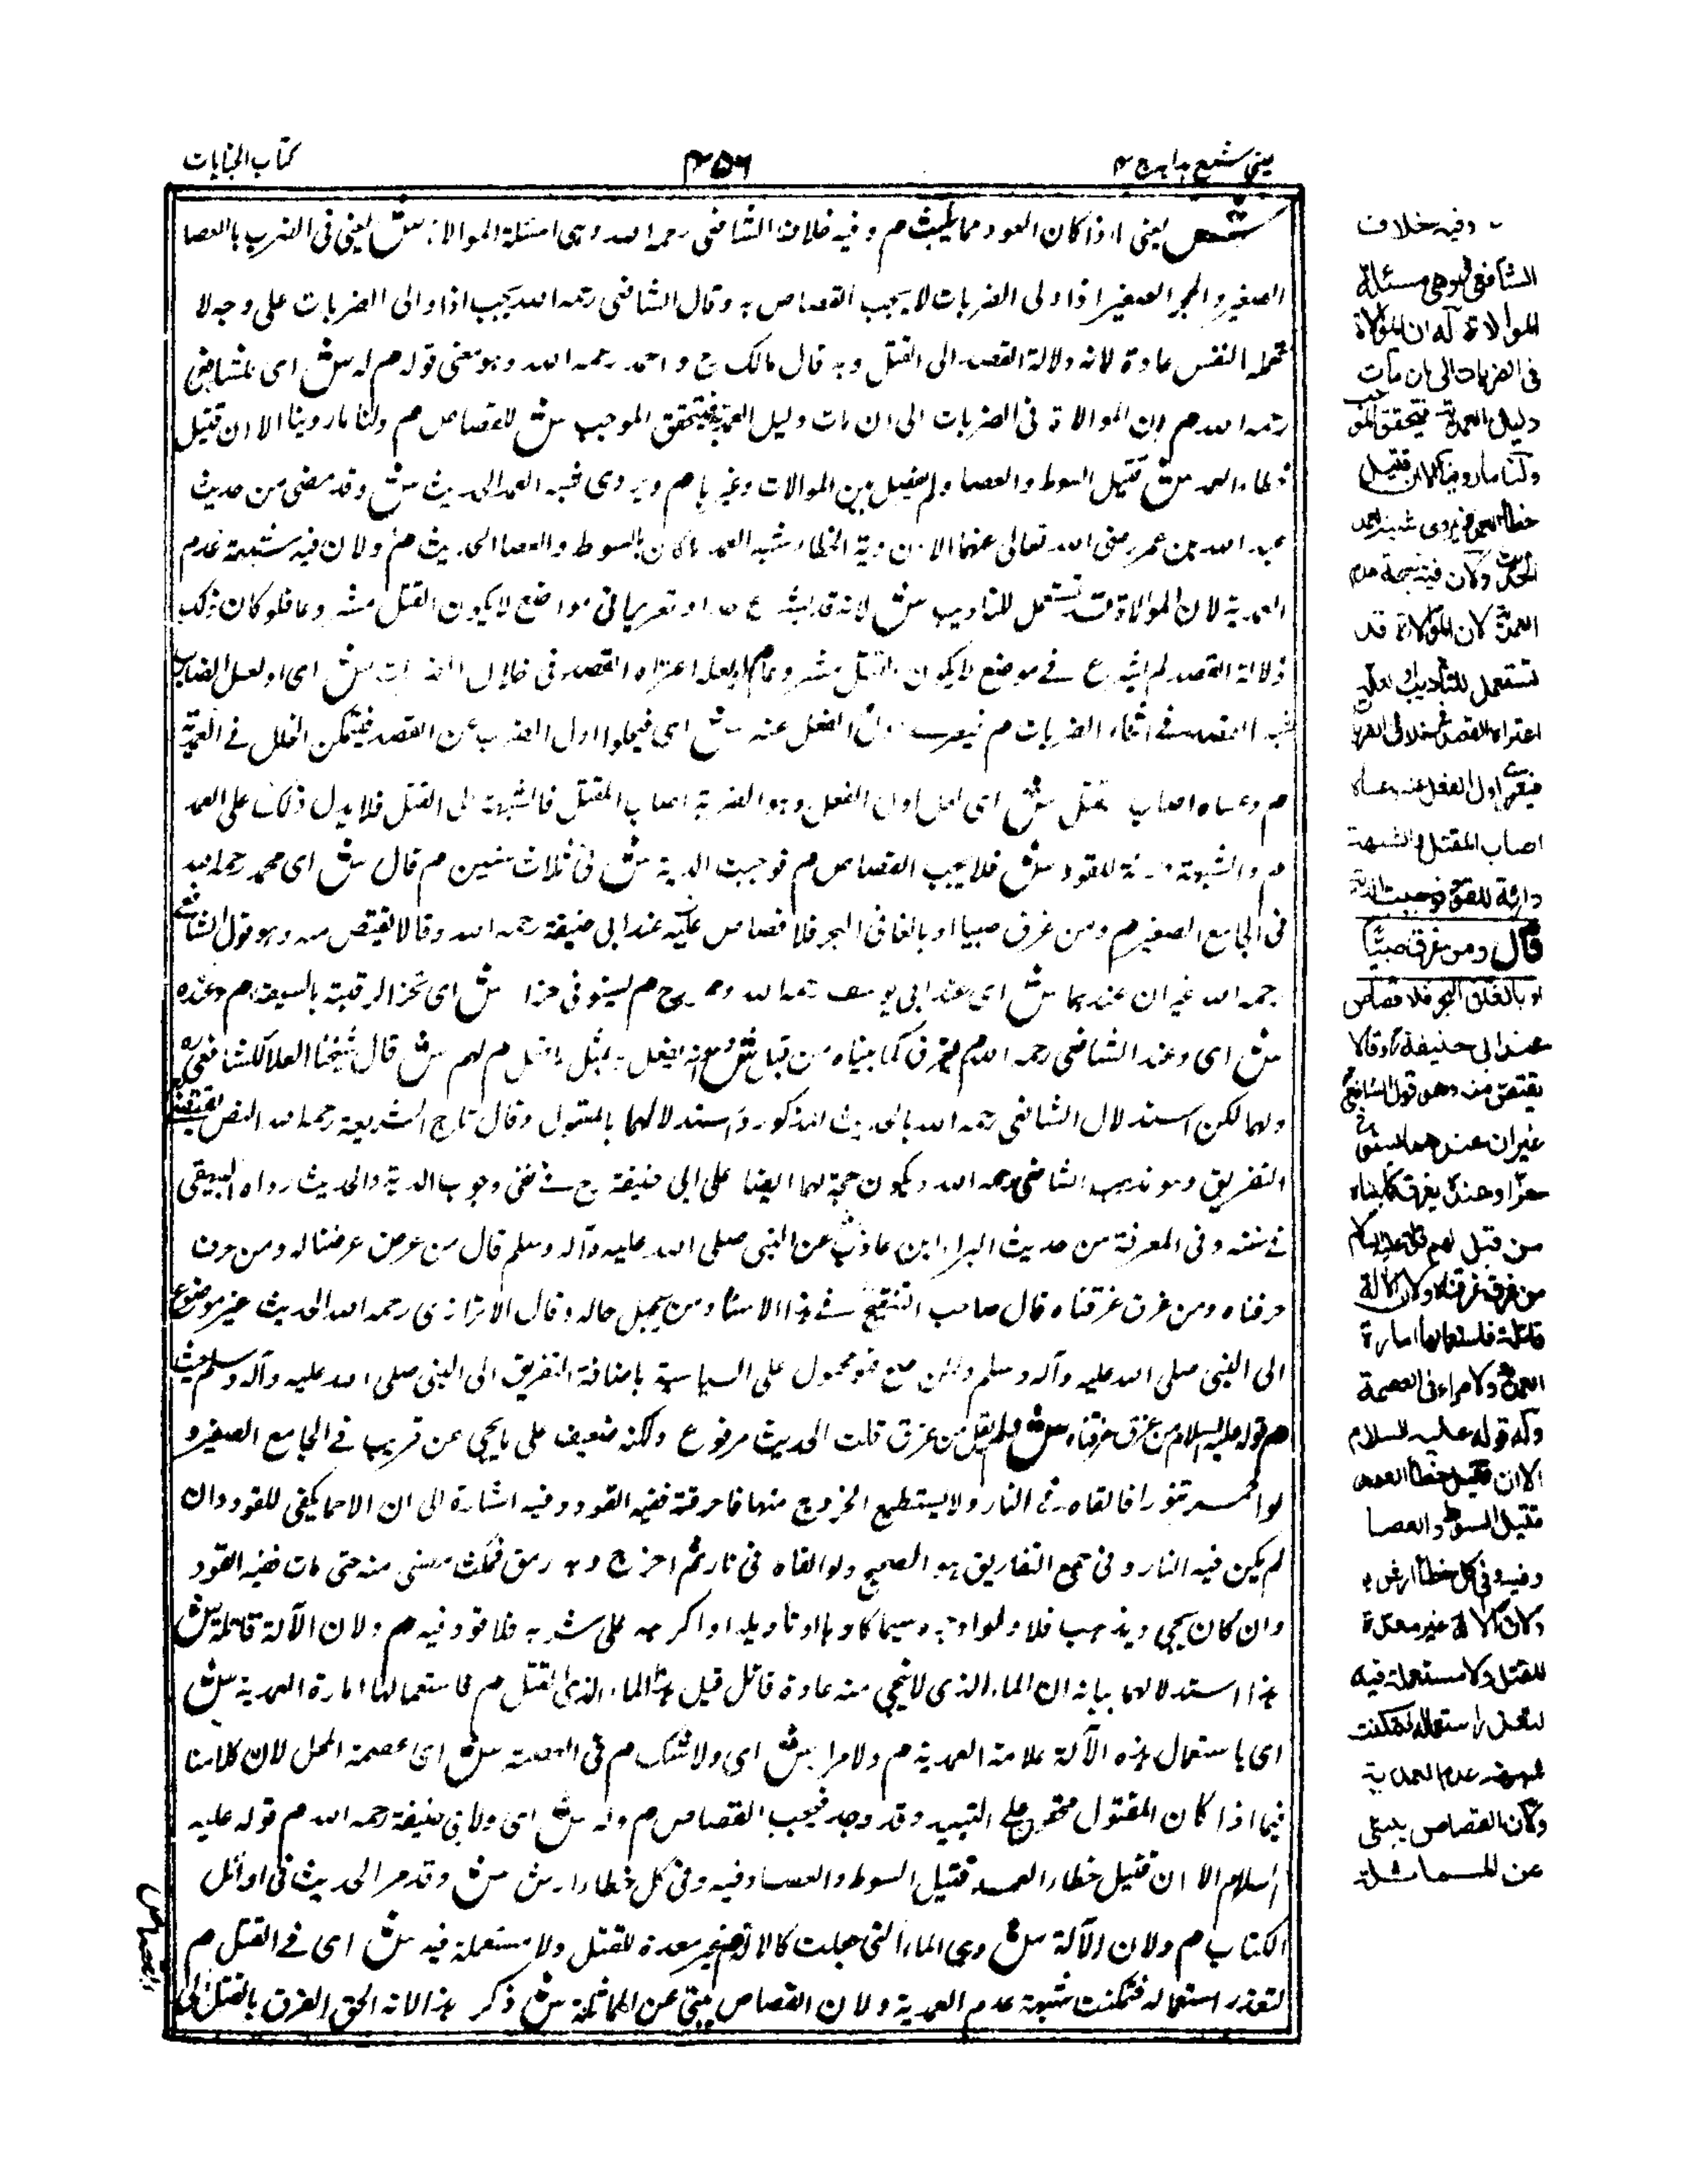 عيني شرح هداية ج ٤
٤٥٦
كتاب الجنايات
ش يعني اذا كان العود مما يلبث م وفيه خلاف الشافعي رحمه الله وهي مسئلة الموالاة ش يعني في الضرب بالعصا
الصغير والحجر الصغير اذا والى الضربات لا يجب القصاص به وقال الشافعي رحمه الله يجب اذا والى الضربات على وجه لا
تحمله النفس عادة لانه دلالة القصد الى القتل وبه قال مالك و احمد رحمه الله وهو معنى قوله م له ش اى للشافعي
رحمه الله م ان الموالاة في الضربات الى ان مات دليل العمدية فيتحقق الموجب ش للقصاص م ولنا ما روينا الا ان قتيل
خطاء العمد ش قتيل السوط والعصا ولم يفصل بين الموالات وغيرها م ويروى شبه العمد الحديث ش وقد مضى من حديث
عبد الله بن عمر رضى الله تعالى عنهما الا ان دية الخطاء شبه العمد ما كان بالسوط والعصا الحديث م ولان فيه شبهة عدم
العمدية لان الموالاة قد تستعمل للتاديب ش لانه قد يشرع حدا او تعزيرا في مواضع لا يكون القتل مشروعا فلو كان ذلك
دلالة القصد لم يشرع في موضع لا يكون القتل مشروعا م او لعله اعتراه القصد في خلال الضربات ش اى او لعل الضارب
القصد في اثناء الضربات م فيعرى اول الفعل عنه ش اى فيخلوا اول الضرب عن القصد فيتمكن الخلل في العمدية
م وعساه اصاب المقتل ش اى لعل اول الفعل وهو الضربة اصاب المقتل فالشبهة الى القتل فلا يدل ذلك على العمد
م والشبهة دارئة للقود ش فلا يجب القصاص م فوجبت الدية ش في ثلاث سنين م قال ش اى محمد رحمه الله
في الجامع الصغير م ومن غرق صبيا او بالغا في البحر فلا قصاص عليه عند ابي حنيفة رحمه الله وقالا يقتص منه وهو قول الشافعي
رحمه الله غير ان عندهما ش اى عند ابي يوسف رحمه الله ومحمد رح م يستوفى حزا ش اى تحز الرقبة بالسيف م وعنده
ش اى وعند الشافعي رحمه الله م يغرق كما بيناه من قبل ش انه يفعل به مثل ما فعل م لهم ش قال شيخنا العلا للشافعي
ولهما لكن استدلال الشافعي رحمه الله بالحديث المذكور واستدلالهما بالمنقول وقال تاج الشريعة رحمه الله النص يقتضي
التغريق وهو مذهب الشافعي رحمه الله ويكون حجة لهما ايضا على ابي حنيفة رح في نفي وجوب الدية والحديث رواه البيهقي
في سننه وفي المعرفة من حديث البراء ابن عازب عن النبي صلى الله عليه وآله وسلم قال من عرض عرضنا له ومن حرق
حرقناه ومن غرق غرقناه قال صاحب التنقيح في هذا الاسناد من يجهل حاله وقال الاترازي رحمه الله الحديث غير مرفوع
الى النبي صلى الله عليه وآله وسلم ولئن صح فهو محمول على السياسة باضافة التغريق الى النبي صلى الله عليه وآله وسلم حيث
م قوله عليه السلام من غرق غرقناه ش ولم يقل من غرق قلت الحديث مرفوع ولكنه ضعيف على ما يجي عن قريب في الجامع الصغير و
لو احمى تنورا فالقاه في النار ولا يستطيع الخروج منها فاحرقته ففيه القود وفيه اشارة الى ان الاحما يكفي للقود وان
لم يكن فيه النار وفي جمع التفاريق هو الصحيح ولو القاه في نار ثم اخرج وبه رمق فمكث مضنى منه حتى مات ففيه القود
وان كان يجي ويذهب فلا ولو اوجره سما كارها او ناوله او اكرهه على شربه فلا قود فيه م ولان الآلة قاتلة ش
هذا استدلالهما بيانه ان الماء الذى لا ينجي منه عادة قاتل قيل هذا الماء الذى للقتل م فاستعمالها امارة العمدية ش
اى باستعمال هذه الآلة علامة العمدية م ولا مراء ش اى ولا شك م في العصمة ش اى عصمة المحل لان كلامنا
فيما اذا كان المقتول محقون على التابيد وقد وجد فيجب القصاص م وله ش اى ولابي حنيفة رحمه الله م قوله عليه
السلام الا ان قتيل خطاء العمد قتيل السوط والعصا وفيه وفي كل خطاء ارش ش وقد مر الحديث في اوائل
الكتاب م ولان الآلة ش وهي الماء التي جعلت كالآلة م غير معدة للقتل ولا مستعملة فيه ش اى في القتل م
لتعذر استعماله فتمكنت شبهة عدم العمدية ولان القصاص ينبئ عن المماثلة ش ذكر هذا لانه الحق الغرق بالقتل
القصاص
وفيه خلاف
الشافعي وهي مسئلة
الموالاة له ان الموالاة
في الضربات الى ان مات
دليل العمدية فيتحقق الموجب
ولنا ما روينا الا ان قتيل
خطأ العمد ويروى شبه العمد
الحديث ولان فيه شبهة عدم
العمدية لان الموالاة قد
تستعمل للتأديب او لعله
اعتراه القصد في خلال الضربات
فيعرى اول الفعل عنه وعساه
اصاب المقتل والشبهة
دارئة للقود فوجبت الدية
قال ومن غرق صبيًّا
او بالغا في البحر فلا قصاص
عند ابي حنيفة وقالا
يقتص منه وهو قول الشافعي
غير ان عندهما يستوفى
حزا وعنده يغرق كما بيناه
من قبل لهم قوله عليه السلام
من غرق غرقناه ولان الآلة
قاتلة فاستعمالها امارة
العمدية ولا مراء في العصمة
وله قوله عليه السلام
الا ان قتيل خطأ العمد
قتيل السوط والعصا
وفيه وفي كل خطأ ارش
ولان الآلة غير معدة
للقتل ولا مستعملة فيه
لتعذر استعماله فتمكنت
شبهة عدم العمدية
ولان القصاص ينبئ
عن المماثلة